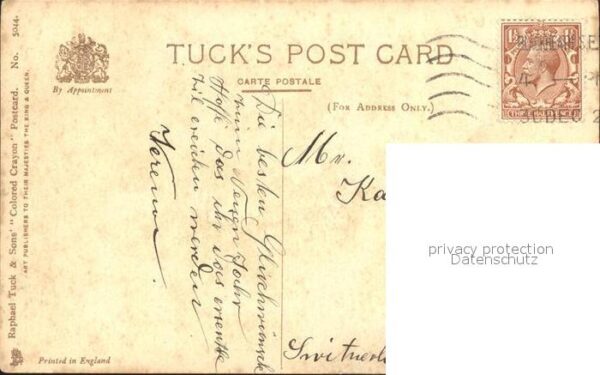 TUCK'S POST CARD
CARTE POSTALE
By Appointment
(FOR ADDRESS ONLY.)
Raphael Tuck & Sons' "Colored Crayon" Postcard. No. 5044.
ART PUBLISHERS TO THEIR MAJESTIES THE KING & QUEEN.
Printed in England
30 DEC 2
Die besten Glückwünsche
zum Neuen Jahr
Hoffe das ihr das ersehnte
Ziel erreichen werden
Verena
Mr.
Ka
Switzerl
privacy protection
Datenschutz